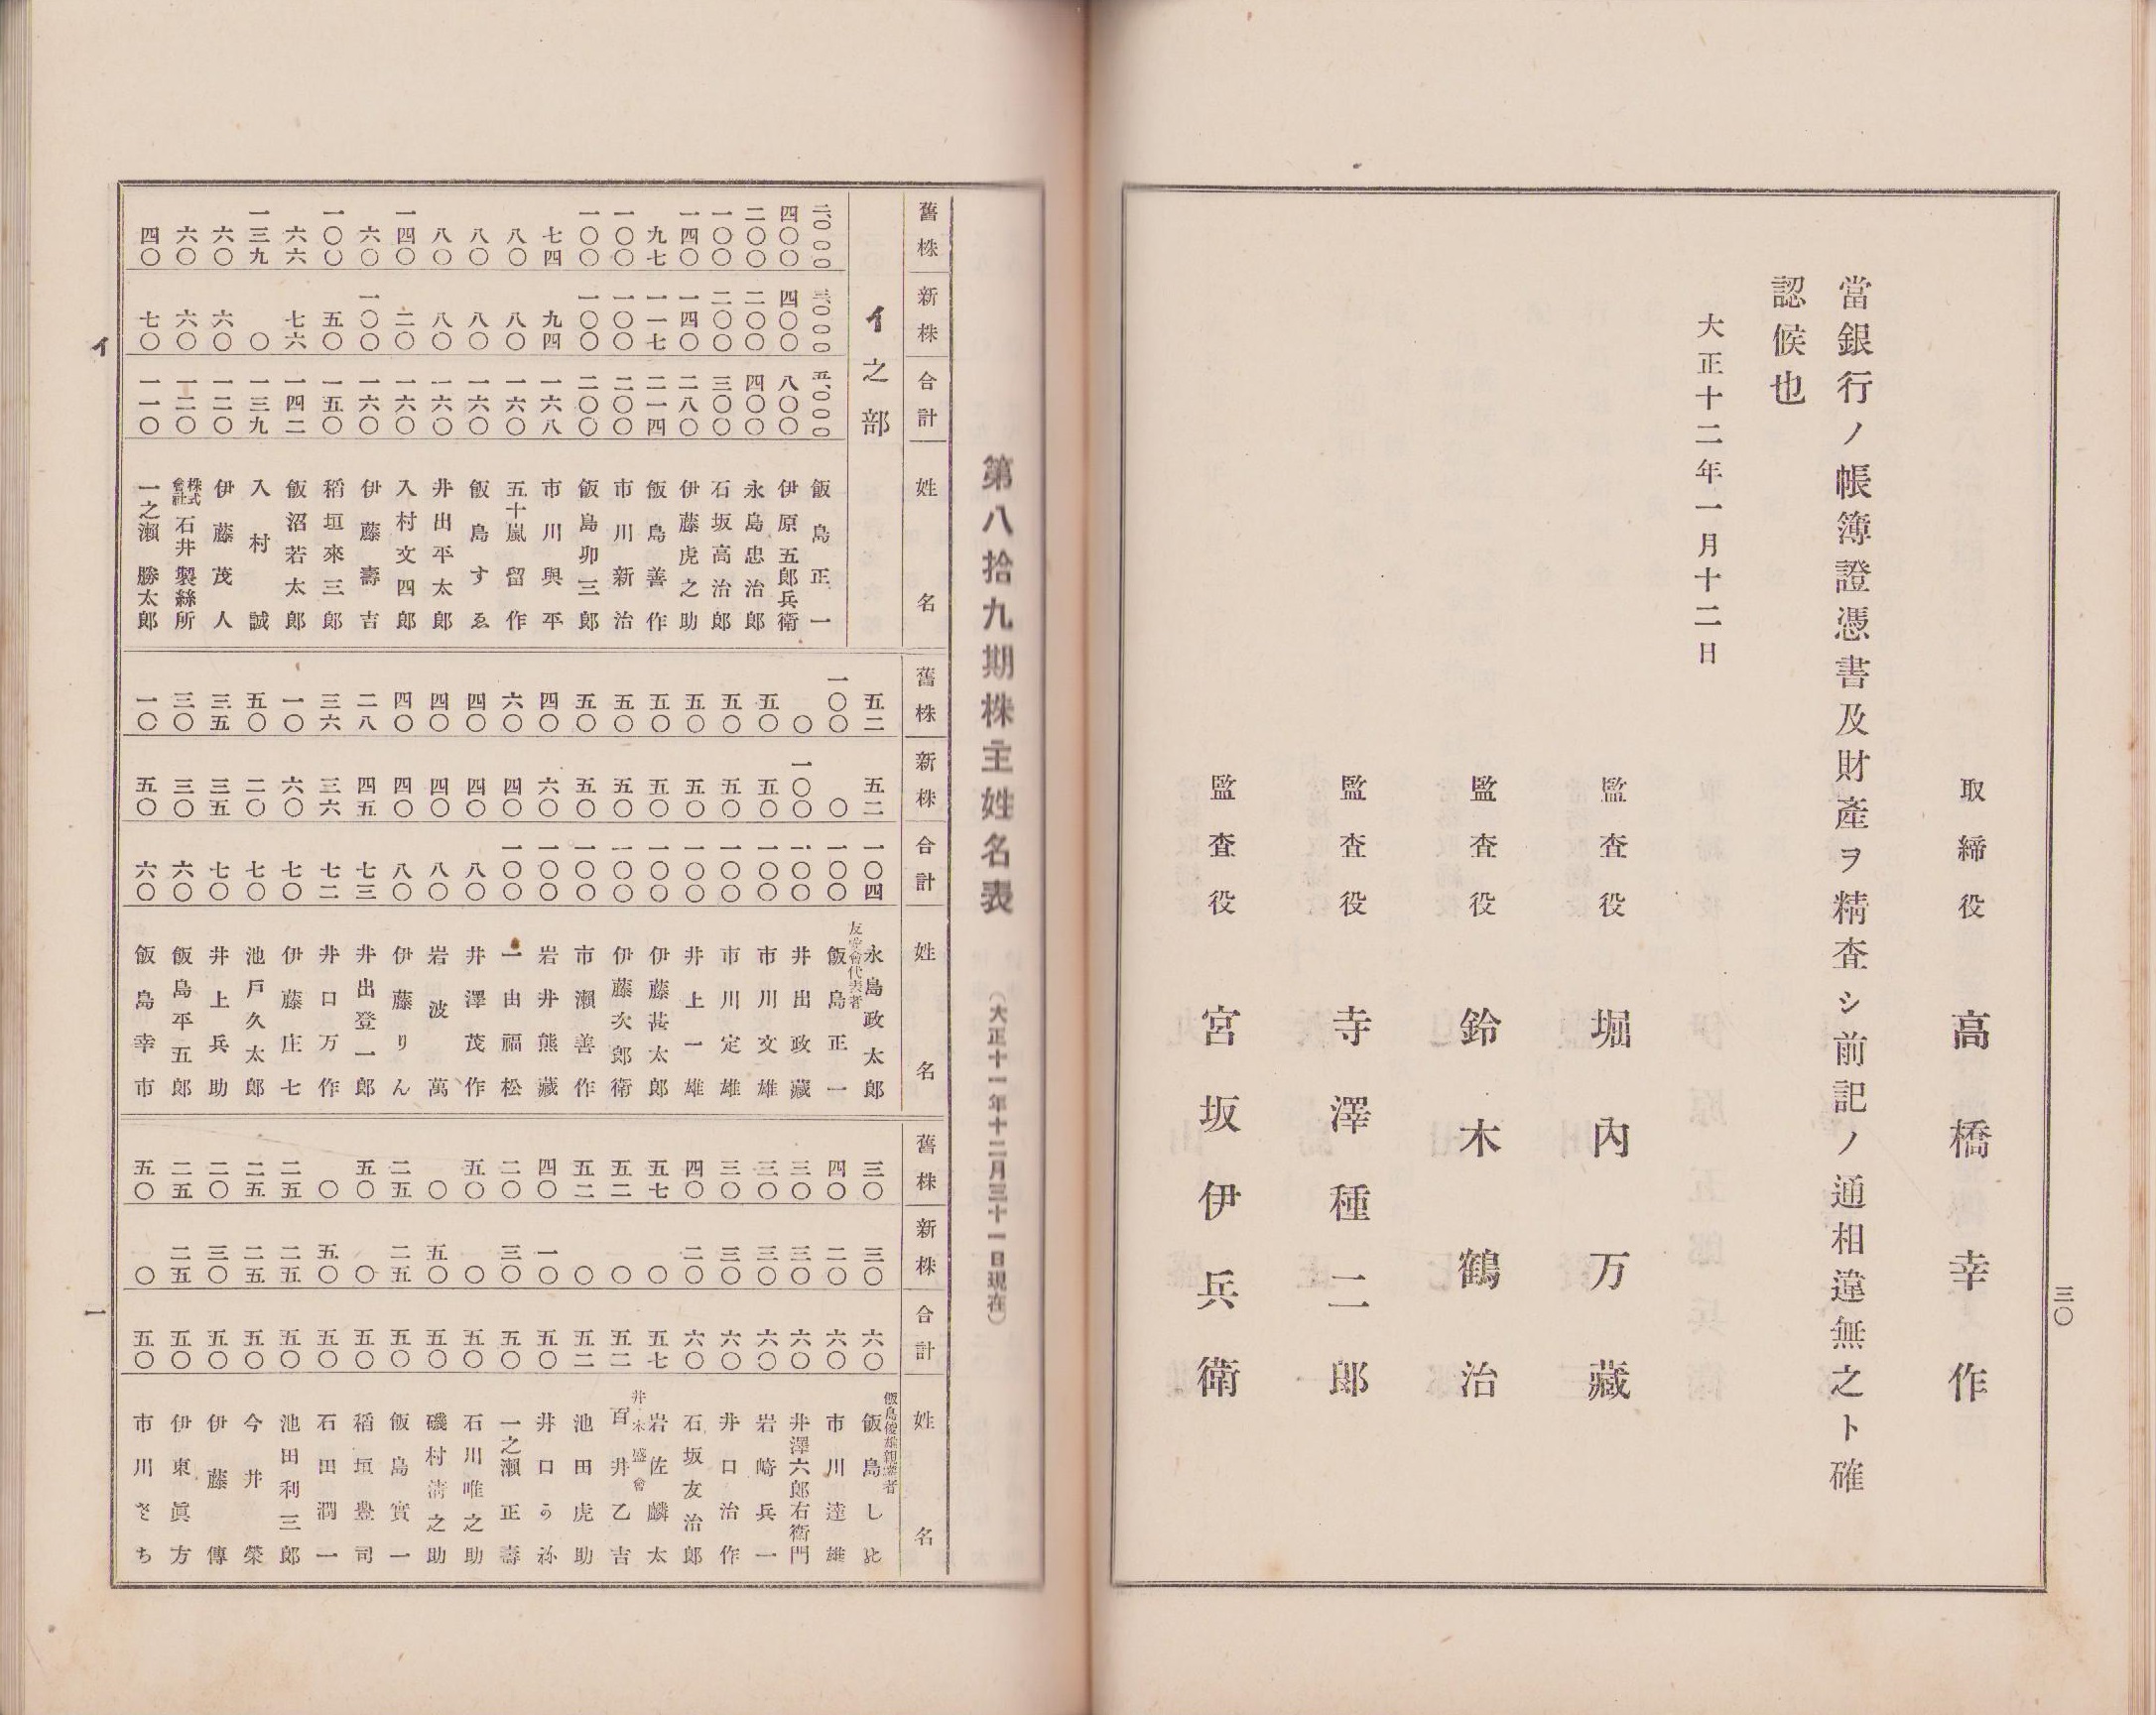 三〇
取締役 高橋幸作
當銀行ノ帳簿證憑書及財產ヲ精査シ前記ノ通相違無之ト確
認候也
大正十二年一月十二日
監査役 堀內万藏
監査役 鈴木鶴治
監査役 寺澤種二郎
監査役 宮坂伊兵衛
第八拾九期株主姓名表 （大正十一年十二月三十一日現在）
舊株 新株 合計 姓名
イ之部
二、〇〇〇 三、〇〇〇 五、〇〇〇 飯島正一
四〇〇 四〇〇 八〇〇 伊原五郎兵衛
二〇〇 二〇〇 四〇〇 永島忠治郎
一〇〇 二〇〇 三〇〇 石坂高治郎
一四〇 一四〇 二八〇 伊藤虎之助
九七 一一七 二一四 飯島善作
一〇〇 一〇〇 二〇〇 市川新治
一〇〇 一〇〇 二〇〇 飯島卯三郎
七四 九四 一六八 市川與平
八〇 八〇 一六〇 五十嵐留作
八〇 八〇 一六〇 飯島すゑ
八〇 八〇 一六〇 井出平太郎
一四〇 二〇 一六〇 入村文四郎
六〇 一〇〇 一六〇 伊藤壽吉
一〇〇 五〇 一五〇 稻垣來三郎
六六 七六 一四二 飯沼若太郎
一三九 〇 一三九 入村誠
六〇 六〇 一二〇 伊藤茂人
六〇 六〇 一二〇 株式會社石井製絲所
四〇 七〇 一一〇 一之瀨勝太郎
舊株 新株 合計 姓名
五二 五二 一〇四 永島政太郎
一〇〇 〇 一〇〇 友愛會代表者 飯島正一
〇 一〇〇 一〇〇 井出政藏
五〇 五〇 一〇〇 市川文雄
五〇 五〇 一〇〇 市川定雄
五〇 五〇 一〇〇 井上一雄
五〇 五〇 一〇〇 伊藤甚太郎
五〇 五〇 一〇〇 伊藤次郎衛
五〇 五〇 一〇〇 市瀨善作
四〇 六〇 一〇〇 岩井熊藏
六〇 四〇 一〇〇 一由福松
四〇 四〇 八〇 井澤茂作
四〇 四〇 八〇 岩波萬
四〇 四〇 八〇 伊藤りん
二八 四五 七三 井出登一郎
三六 三六 七二 井口万作
一〇 六〇 七〇 伊藤庄七
五〇 二〇 七〇 池戸久太郎
三五 三五 七〇 井上兵助
三〇 三〇 六〇 飯島平五郎
一〇 五〇 六〇 飯島幸市
舊株 新株 合計 姓名
三〇 三〇 六〇 飯島俊雄親權者 飯島し
四〇 二〇 六〇 市川達雄
三〇 三〇 六〇 井澤六郎右衛門
三〇 三〇 六〇 岩崎兵一
三〇 三〇 六〇 井口治作
四〇 二〇 六〇 石坂友治郎
五七 〇 五七 岩佐麟太
五二 〇 五二 井木盛會 百井乙吉
五二 〇 五二 池田虎助
四〇 一〇 五〇 井口うね
二〇 三〇 五〇 一之瀨正壽
五〇 〇 五〇 石川唯之助
〇 五〇 五〇 磯村淸之助
二五 二五 五〇 飯島實一
五〇 〇 五〇 稻垣豊司
〇 五〇 五〇 石田潤一
二五 二五 五〇 池田利三郎
二五 二五 五〇 今井榮
二〇 三〇 五〇 伊藤傳
二五 二五 五〇 伊東眞方
五〇 〇 五〇 市川さち
イ
一